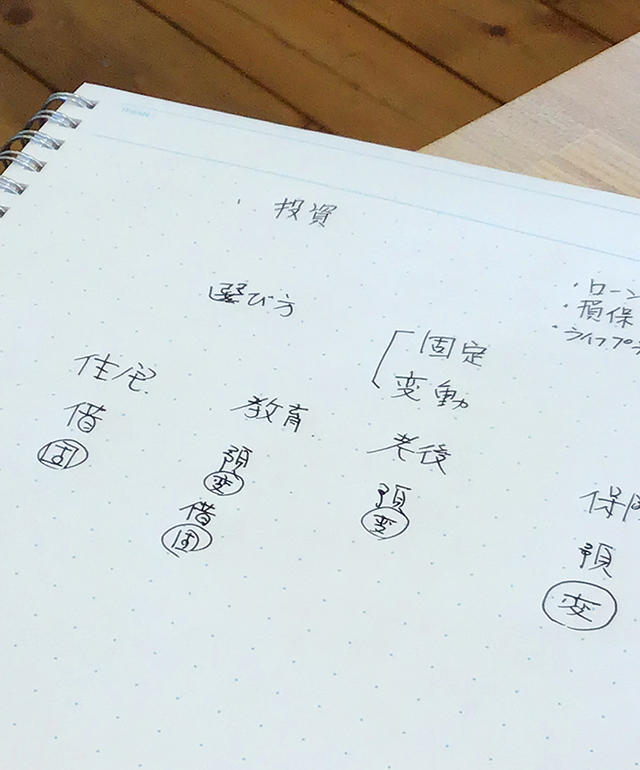 投資
選び方
・ローン
・損保
・ライフプ
固定
変動
住宅
借
固
教育
預
変
借
固
老後
預
変
保
預
変